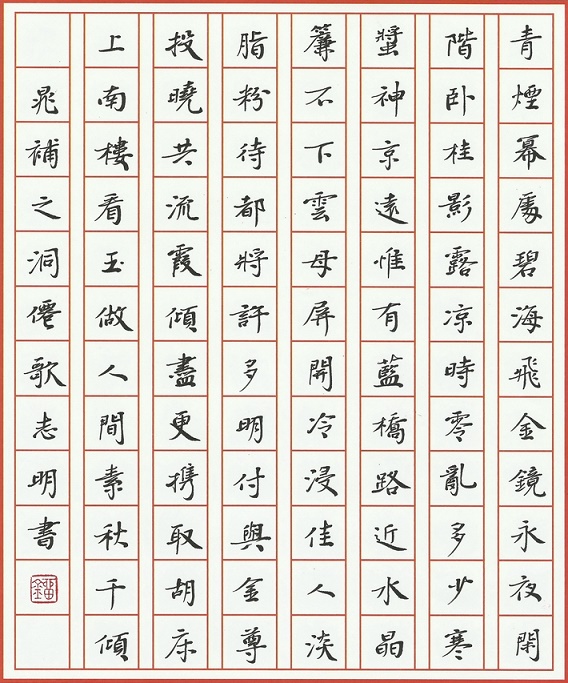 青煙幂處碧海飛金鏡永夜閑
階卧桂影露凉時零亂多少寒
螿神京遠惟有藍橋路近水晶
簾不下雲母屏開冷浸佳人淡
脂粉待都將許多明付與金尊
投曉共流霞傾盡更携取胡床
上南樓看玉做人間素秋千傾
晁補之洞僊歌志明書